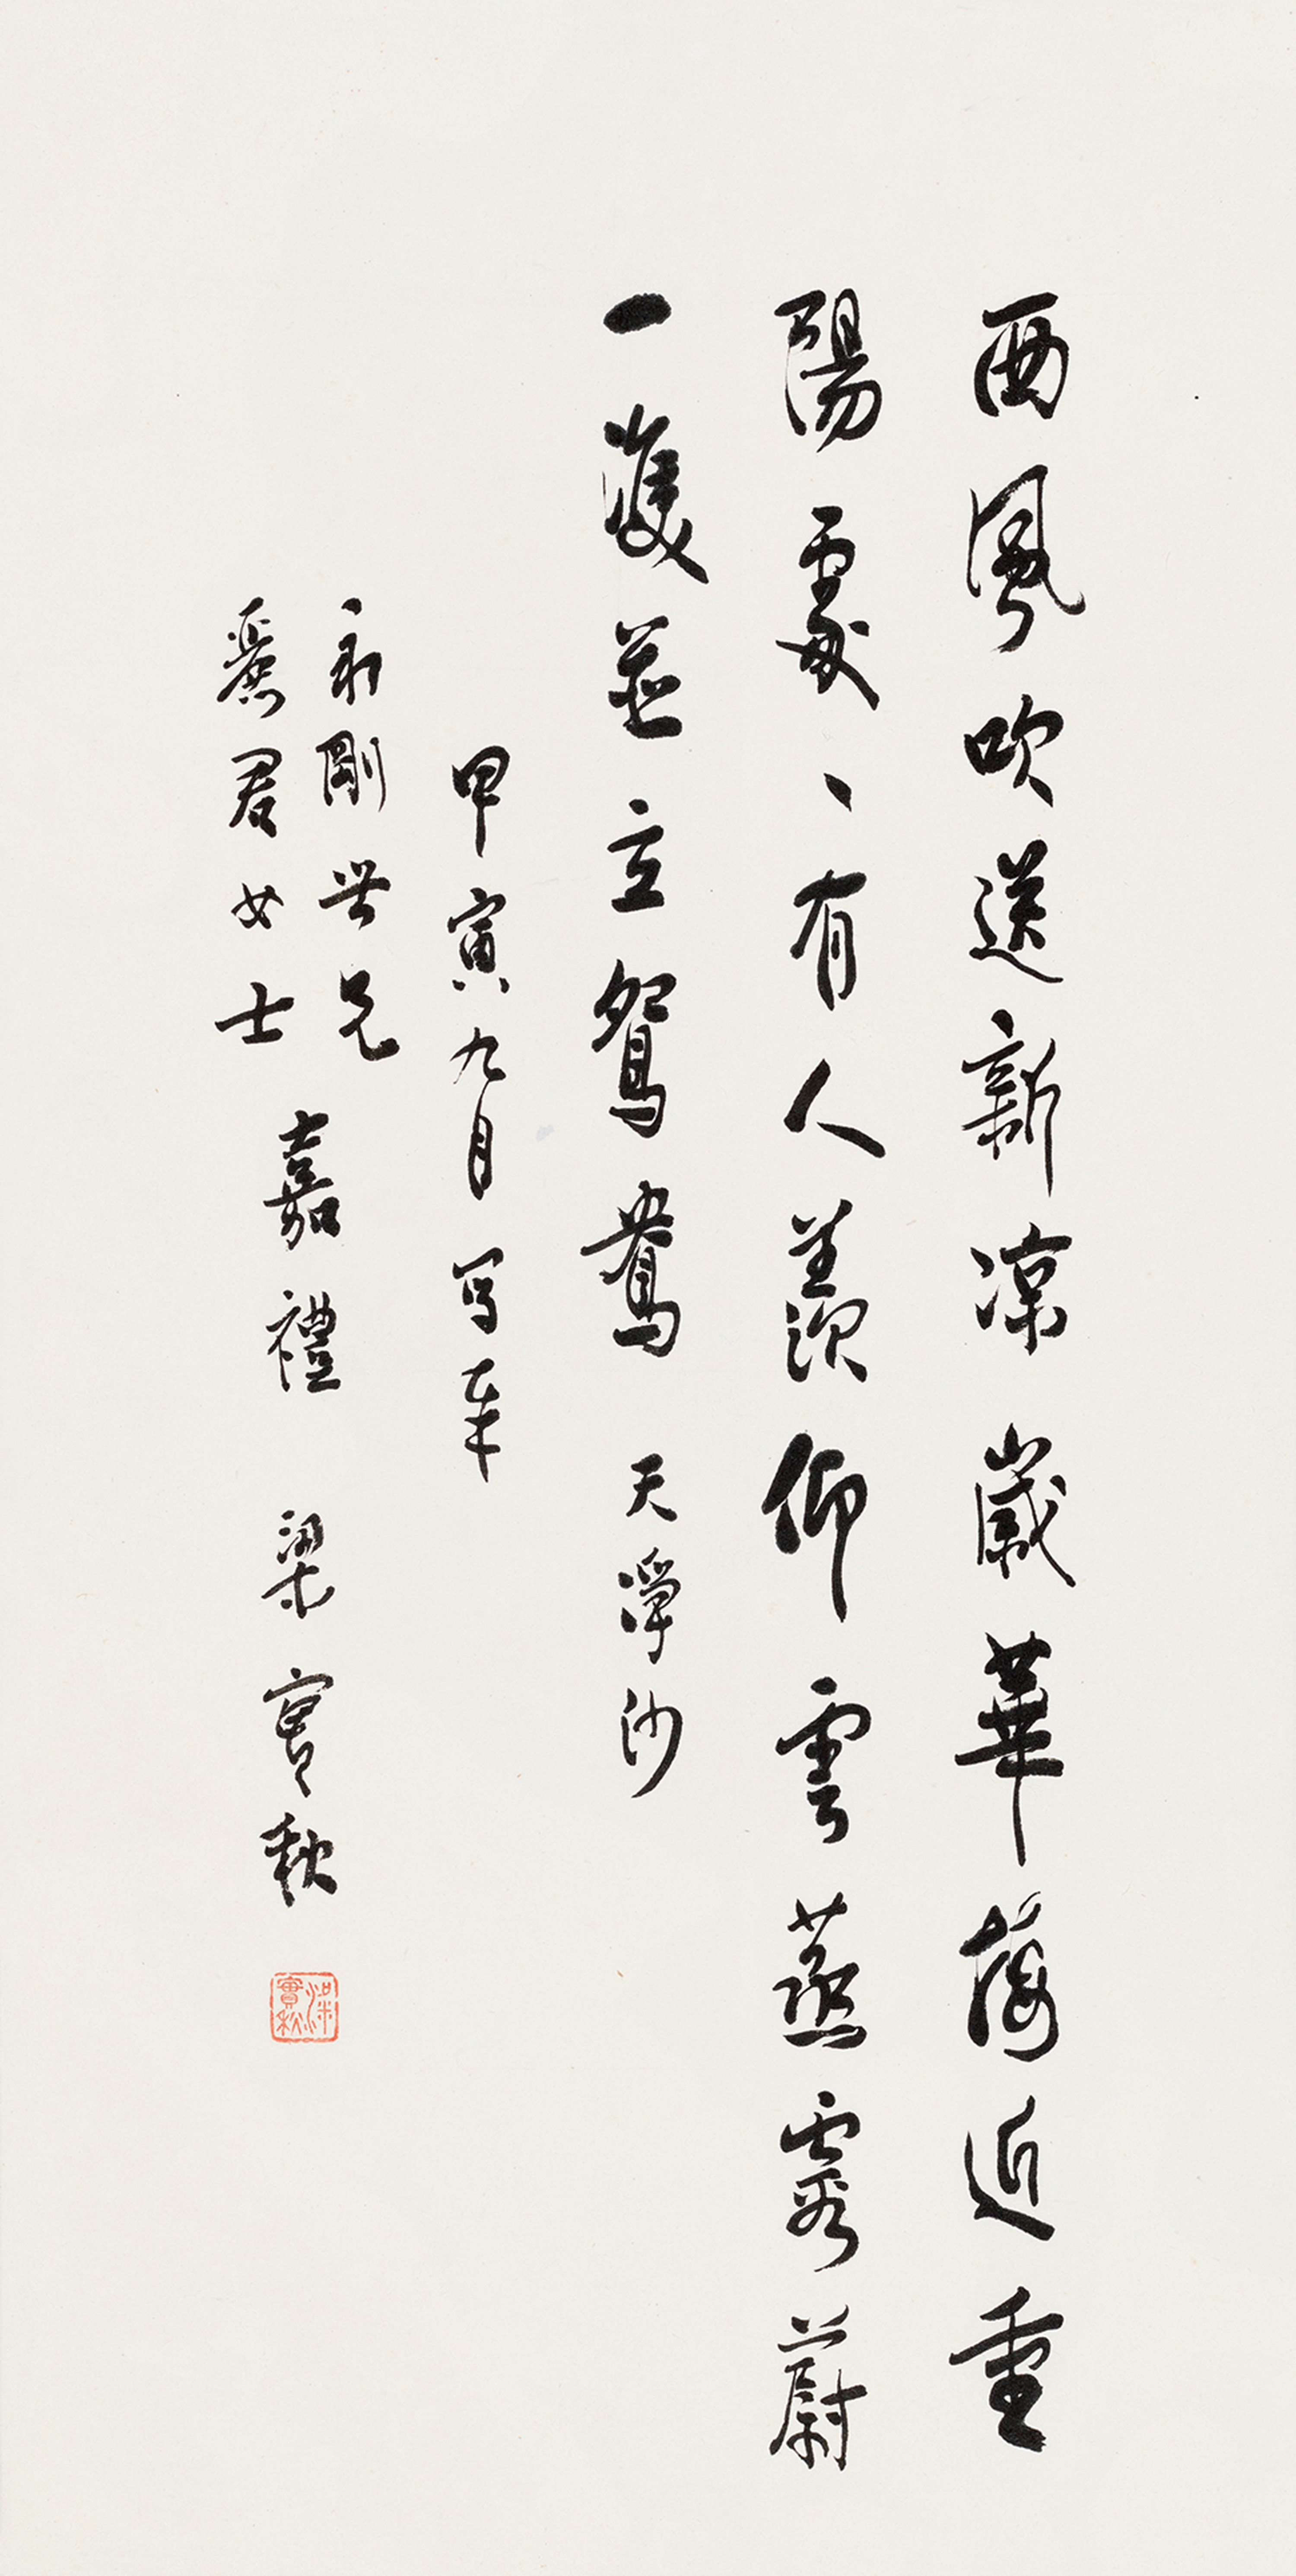 西風吹送新涼歲華落近重
陽處、有人羨仰雲蒸霞蔚
一雙並立鴛鴦 天淨沙
甲寅九月写奉
永剛世兄
麗君女士
嘉禮 梁實秋
梁實秋